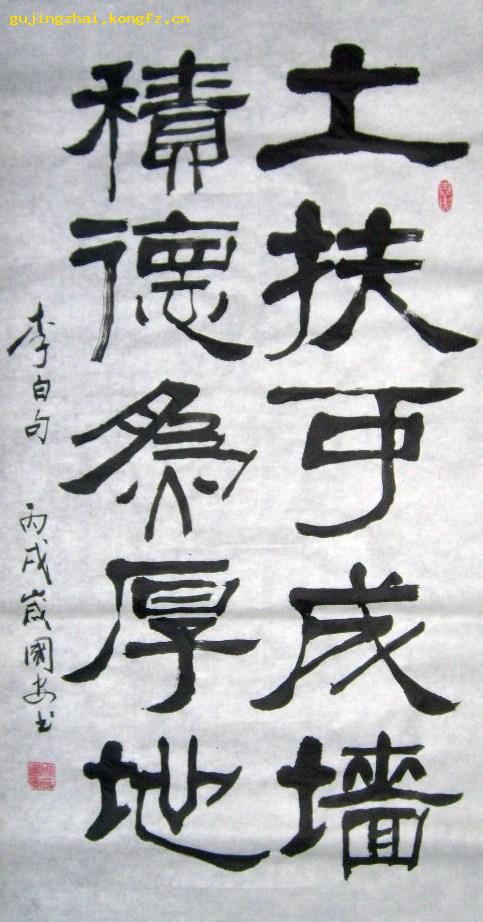 gujingzhai.kongfz.cn
土扶可成墙
積德為厚地
李白句 丙戌歲國安书